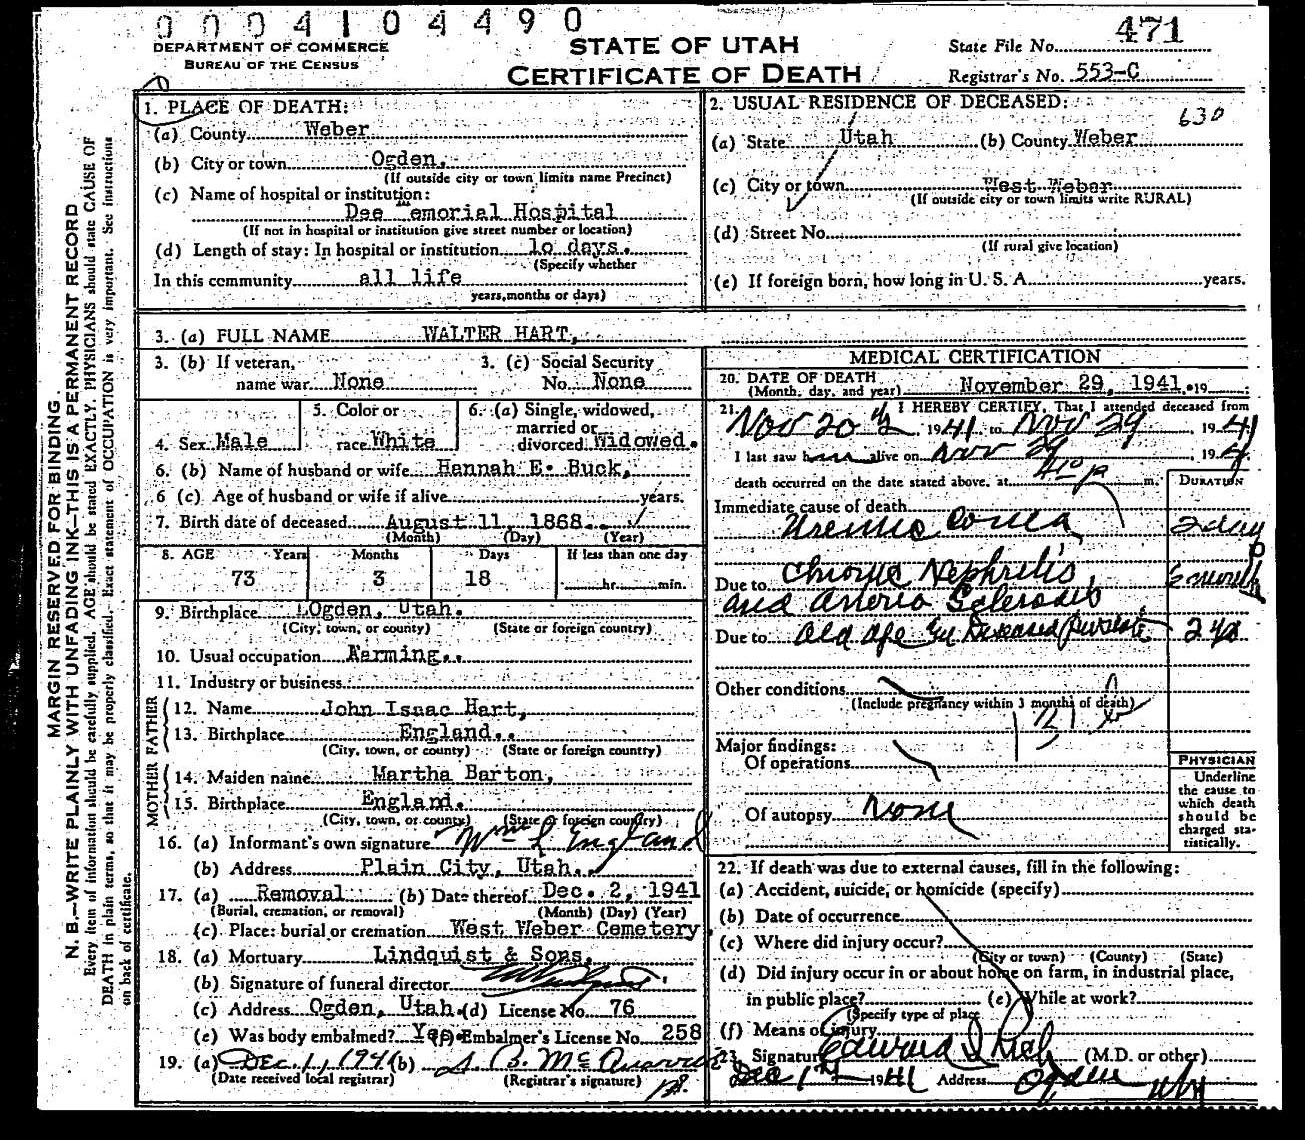 0004104490
DEPARTMENT OF COMMERCE
BUREAU OF THE CENSUS
STATE OF UTAH
CERTIFICATE OF DEATH
State File No. 471
Registrar's No. 553-C
MARGIN RESERVED FOR BINDING
N. B.—WRITE PLAINLY WITH UNFADING INK—THIS IS A PERMANENT RECORD
Every item of information should be carefully supplied. AGE should be stated EXACTLY. PHYSICIANS should state CAUSE OF
DEATH in plain terms, so that it may be properly classified. Exact statement of OCCUPATION is very important. See instructions
on back of certificate.
1. PLACE OF DEATH:
(a) County Weber
(b) City or town Ogden,
(If outside city or town limits name Precinct)
(c) Name of hospital or institution:
Dee Memorial Hospital
(If not in hospital or institution give street number or location)
(d) Length of stay: In hospital or institution 1o days.
(Specify whether
In this community all life
years, months or days)
2. USUAL RESIDENCE OF DECEASED:
630
(a) State Utah (b) County Weber
(c) City or town West Weber
(If outside city or town limits write RURAL)
(d) Street No.
(If rural give location)
(e) If foreign born, how long in U. S. A. years.
3. (a) FULL NAME WALTER HART,
3. (b) If veteran, name war None
3. (c) Social Security No. None
4. Sex Male
5. Color or race White
6. (a) Single, widowed, married or divorced Widowed.
6. (b) Name of husband or wife Hannah E. Buck,
6 (c) Age of husband or wife if alive years.
7. Birth date of deceased August 11, 1868.
(Month) (Day) (Year)
8. AGE Years Months Days If less than one day
73 3 18 hr. min.
9. Birthplace Ogden, Utah.
(City, town, or county) (State or foreign country)
10. Usual occupation Farming..
11. Industry or business
FATHER
12. Name John Isaac Hart,
13. Birthplace England..
(City, town, or county) (State or foreign country)
MOTHER
14. Maiden name Martha Barton,
15. Birthplace England.
(City, town, or county) (State or foreign country)
16. (a) Informant's own signature Wm L England
(b) Address Plain City, Utah..
17. (a) Removal (b) Date thereof Dec. 2, 1941
(Burial, cremation, or removal) (Month) (Day) (Year)
(c) Place: burial or cremation West Weber Cemetery.
18. (a) Mortuary Lindquist & Sons.
(b) Signature of funeral director
(c) Address Ogden, Utah. (d) License No. 76
(e) Was body embalmed? Yes. (f) Embalmer's License No. 258
19. (a) Dec. 1, 1941 (b)
(Date received local registrar) (Registrar's signature)
MEDICAL CERTIFICATION
20. DATE OF DEATH
(Month, day, and year) November 29, 1941. 19
21. I HEREBY CERTIFY, That I attended deceased from
Nov 20 th, 1941 to Nov 29, 1941
I last saw him alive on Nov 29, 194
death occurred on the date stated above, at m.
DURATION
Immediate cause of death
Uremic Coma 2 day
Due to Chronic Nephritis, 6 month
and Arterio Sclerosis
Due to Old Age 2 yrs
Other conditions
(Include pregnancy within 3 months of death)
131 b
Major findings:
Of operations
Of autopsy None
PHYSICIAN
Underline
the cause to
which death
should be
charged sta-
tistically.
22. If death was due to external causes, fill in the following:
(a) Accident, suicide, or homicide (specify)
(b) Date of occurrence
(c) Where did injury occur?
(City or town) (County) (State)
(d) Did injury occur in or about home on farm, in industrial place,
in public place? (e) While at work?
(Specify type of place
(f) Means of injury
23. Signature Edward I Rich (M.D. or other)
Dec 1st 1941 Address Ogden Utah